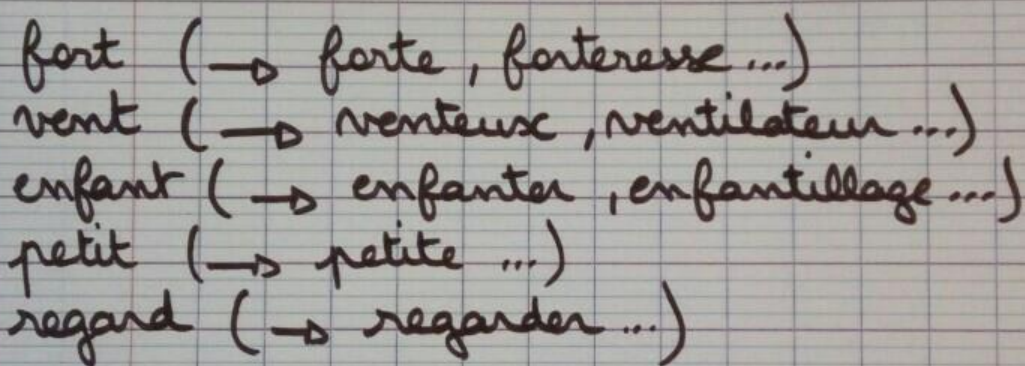 fort (→ forte, forteresse...)
vent (→ venteux, ventilateur...)
enfant (→ enfanter, enfantillage...)
petit (→ petite ...)
regard (→ regarder...)